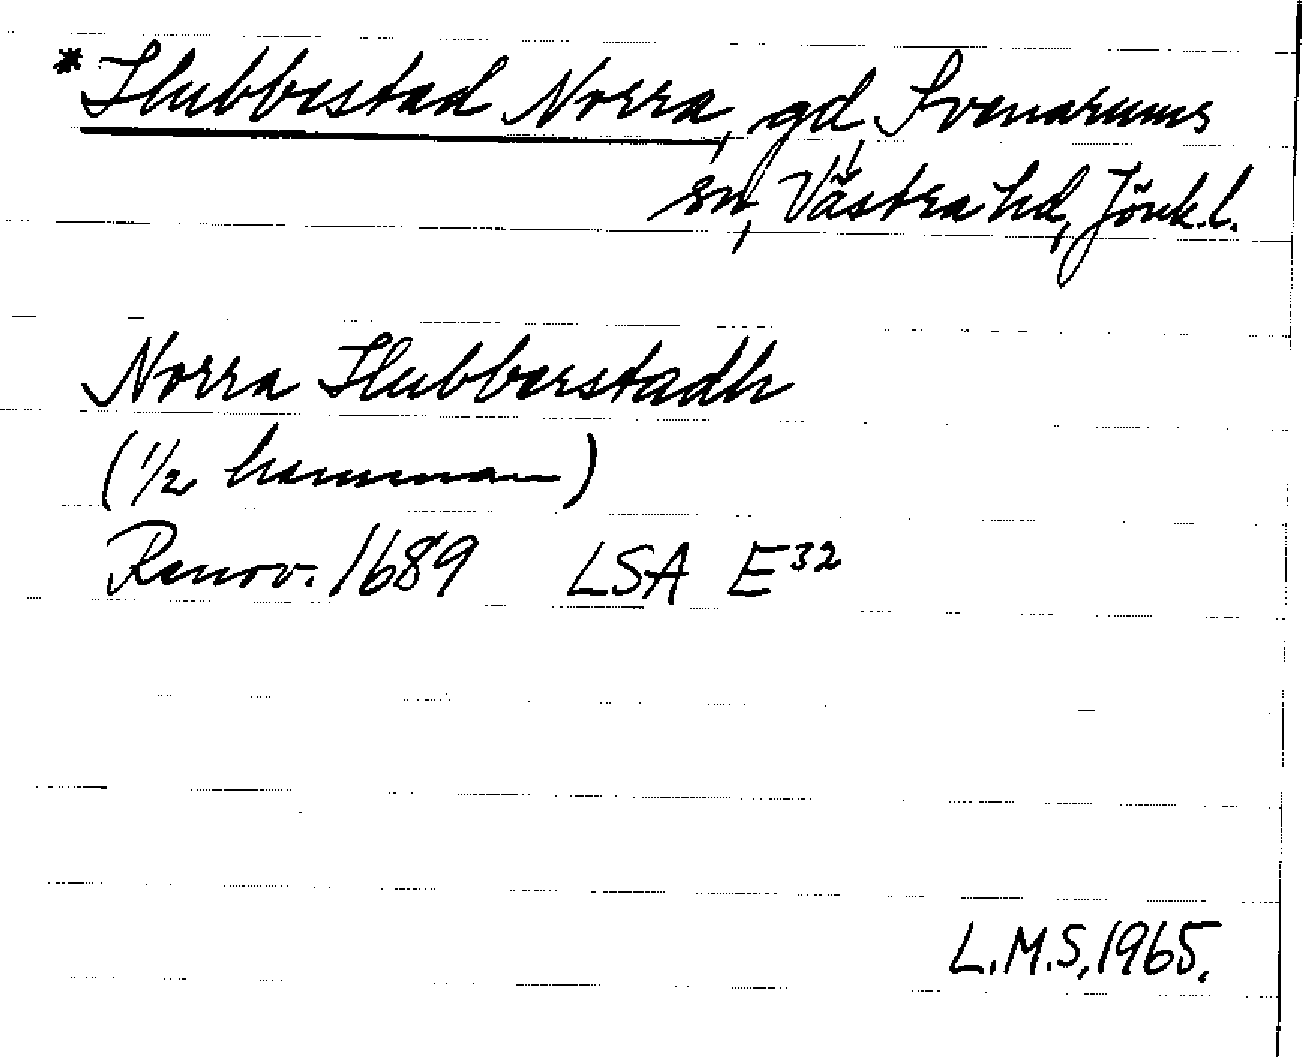 * Hubbestad Norra, gd, Svenarums
sn, Västra hd, Jönk. l.
Norra Hubberstadh
(1/2 hemman)
Renov. 1689 LSA E³²
L.M.S, 1965.